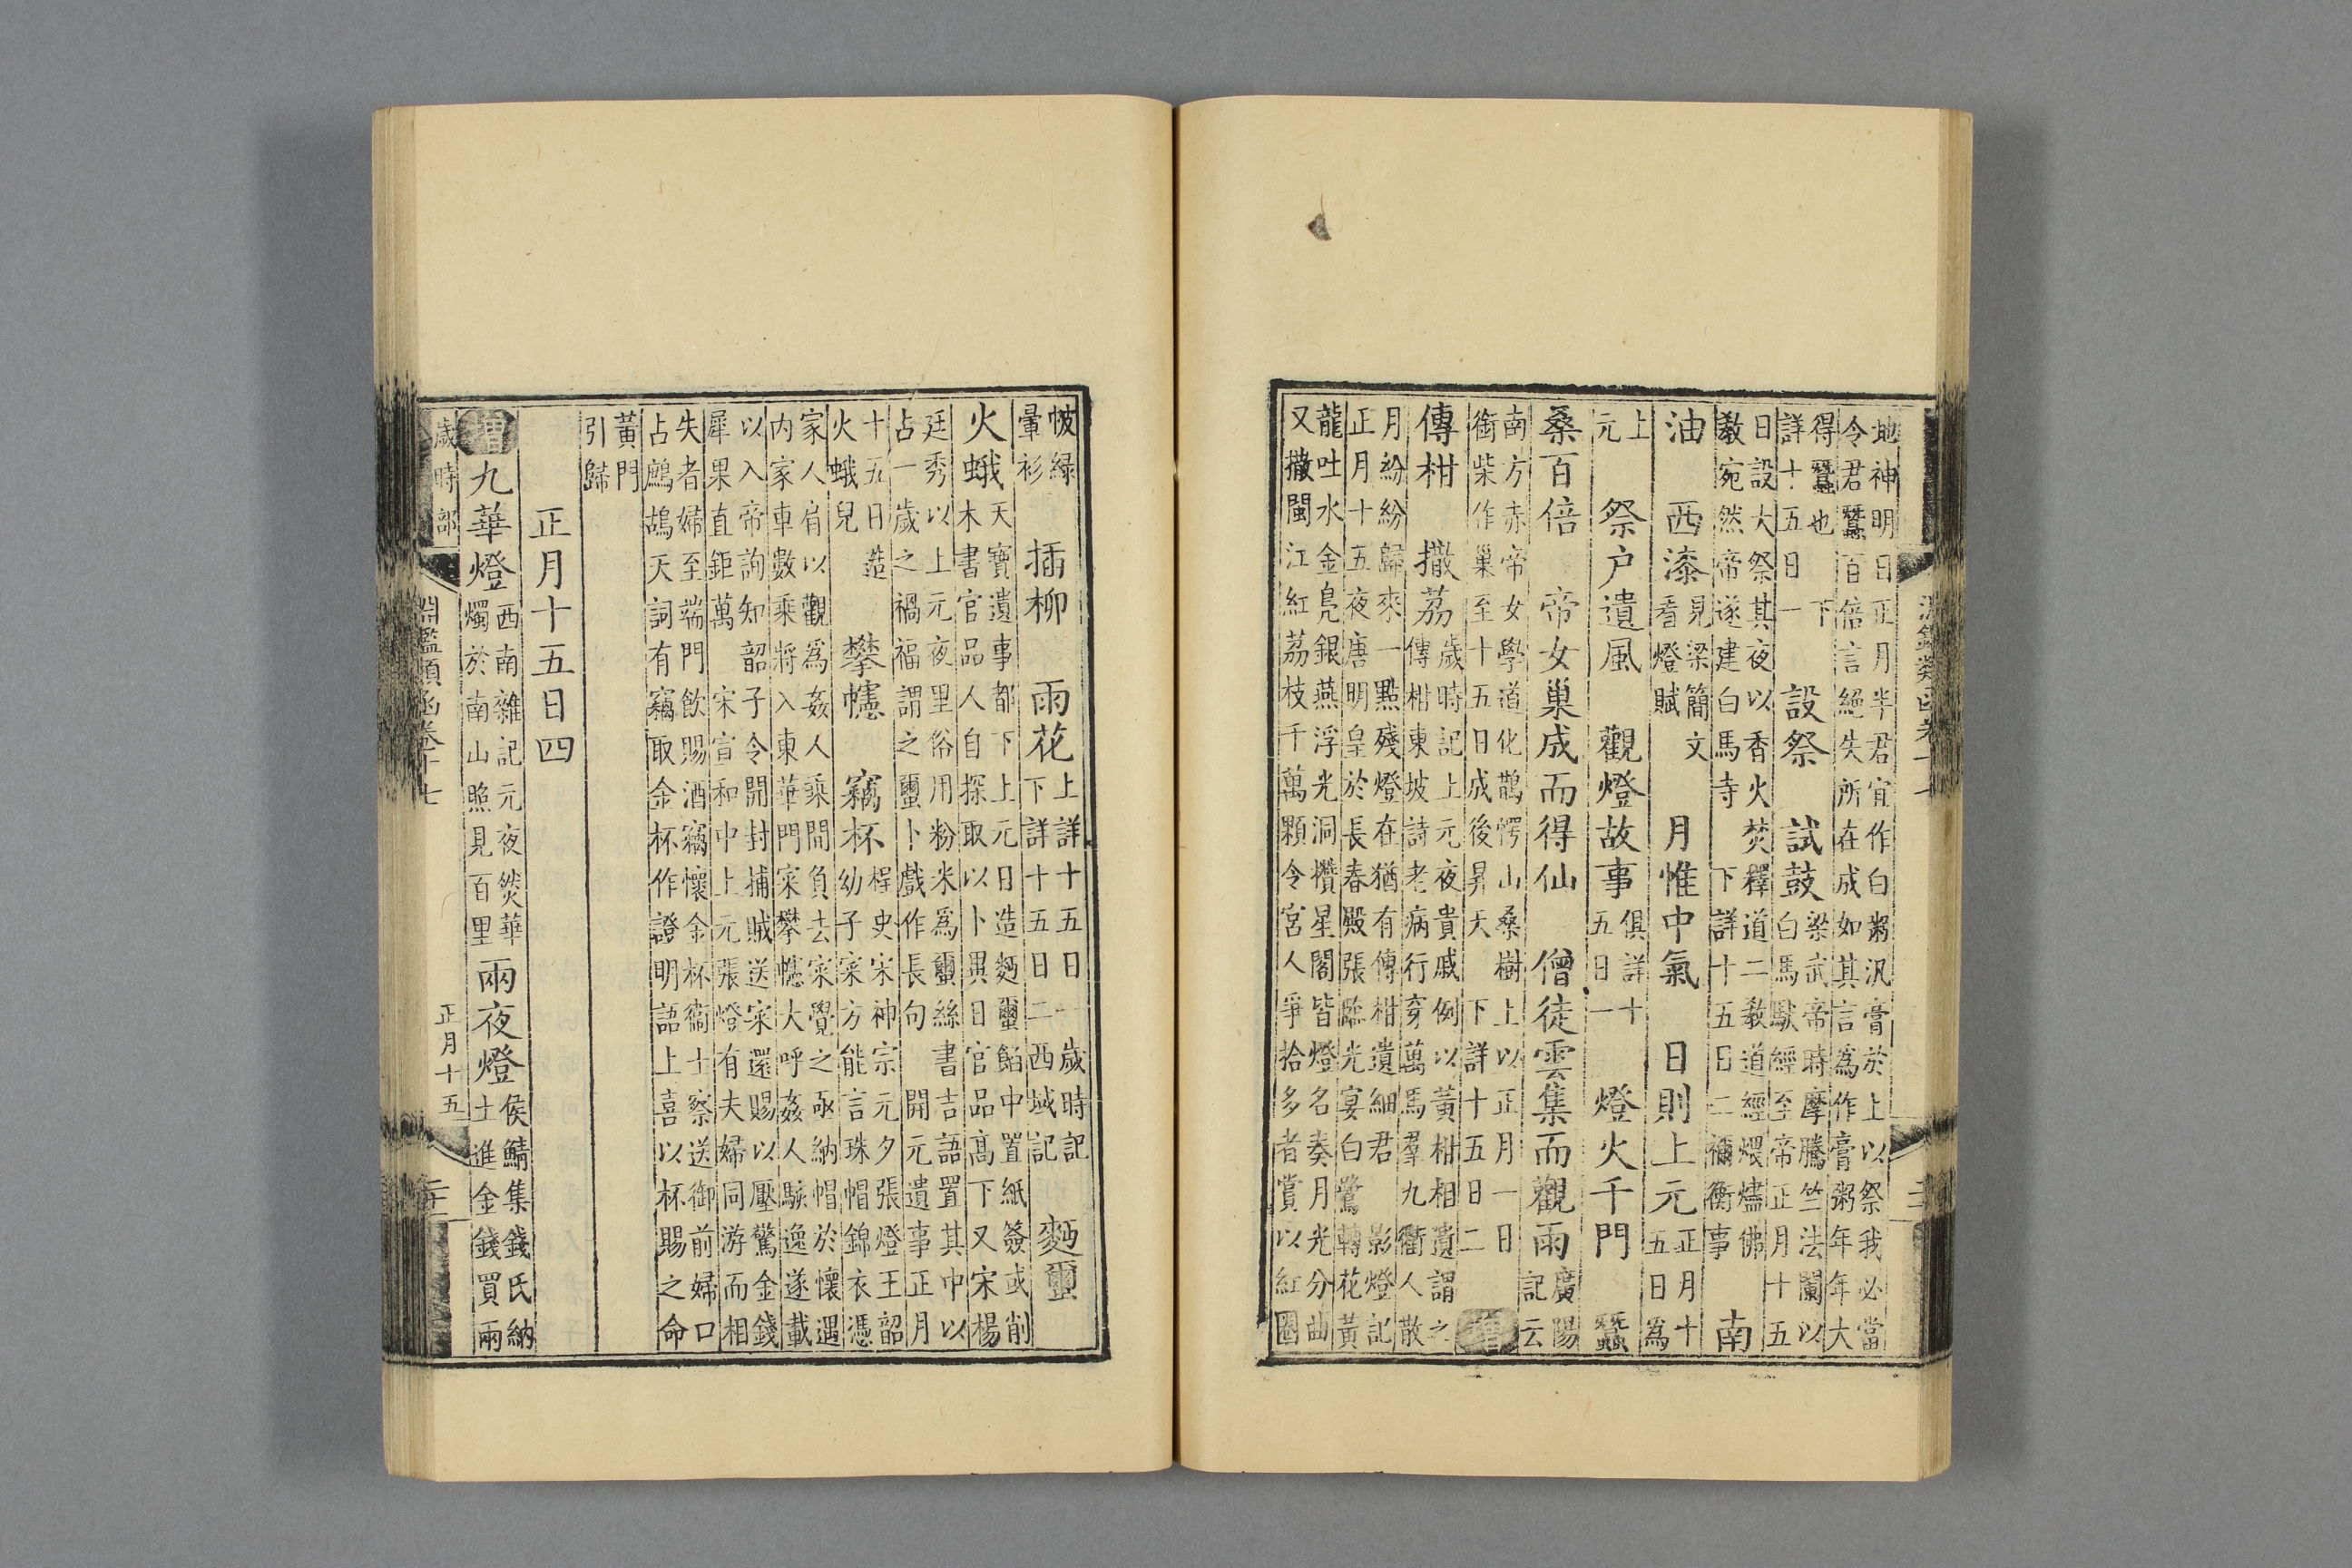 淵鑑類函卷十七
地神明日正月半君宜作白粥汎膏於上以祭我必當
令君蠶百倍言絕失所在成如其言爲作膏粥年年大
得蠶也下
詳十五日一
設祭 試鼓
梁武帝時摩騰竺法蘭以
白馬馱經至帝正月十五
日設大祭其夜以香火焚釋道二教道經煨燼佛
教宛然帝遂建白馬寺下詳十五日二禰衡事
南
油 西漆
見梁簡文
看燈賦
月惟中氣 日則上元
正月十
五日爲
上
元
祭户遺風 觀燈故事
俱詳十
五日一
燈火千門 蠶
桑百倍 帝女巢成而得仙 僧徒雲集而觀雨
廣陽
記云
南方赤帝女學道化鵲愕山桑樹上以正月一日
銜柴作巢至十五日成後昇天下詳十五日二
增
傳柑 撒荔
歲時記上元夜貴戚例以黃柑相遺謂之
傳柑東坡詩老病行穿萬馬羣九衢人散
月紛紛歸來一點殘燈在猶有傳柑遺細君 影燈記
正月十五夜唐明皇於長春殿張臨光宴白鷺轉花黃
龍吐水金鳧銀燕浮光洞攢星閣皆燈名奏月光分曲
又撒閩江紅荔枝千萬顆令宮人爭拾多者賞以紅圈
帔綠
暈衫
插柳 雨花
上詳十五日一歲時記
下詳十五日二西域記
麪蠒
火蛾
天寶遺事都下上元日造麪蠒餡中置紙簽或削
木書官品人自探取以卜異日官品髙下又宋楊
廷秀以上元夜里俗用粉米爲蠒絲書吉語置其中以
占一歲之禍福謂之蠒卜戲作長句 開元遺事正月
十五日造
火蛾兒
攀幰 竊杯
桯史宋神宗元夕張燈王韶
幼子寀方能言珠帽錦衣憑
家人肩以觀爲姦人乘間負去寀覺之亟納帽於懷遇
内家車數乘將入東華門寀攀幰大呼姦人駭逸遂載
以入帝詢知韶子令開封捕賊送寀還賜以壓驚金錢
犀果直鉅萬 宋宣和中上元張燈有夫婦同游而相
失者婦至端門飲賜酒竊懷金杯衞士察送御前婦口
占鷓鴣天詞有竊取金杯作證明語上喜以杯賜之命
黃門
引歸
正月十五日四
增 九華燈
西南雜記元夜燃華
燭於南山照見百里
兩夜燈
侯鯖集錢氏納
土進金錢買兩
歲時部
淵鑑類函卷十七
正月十五